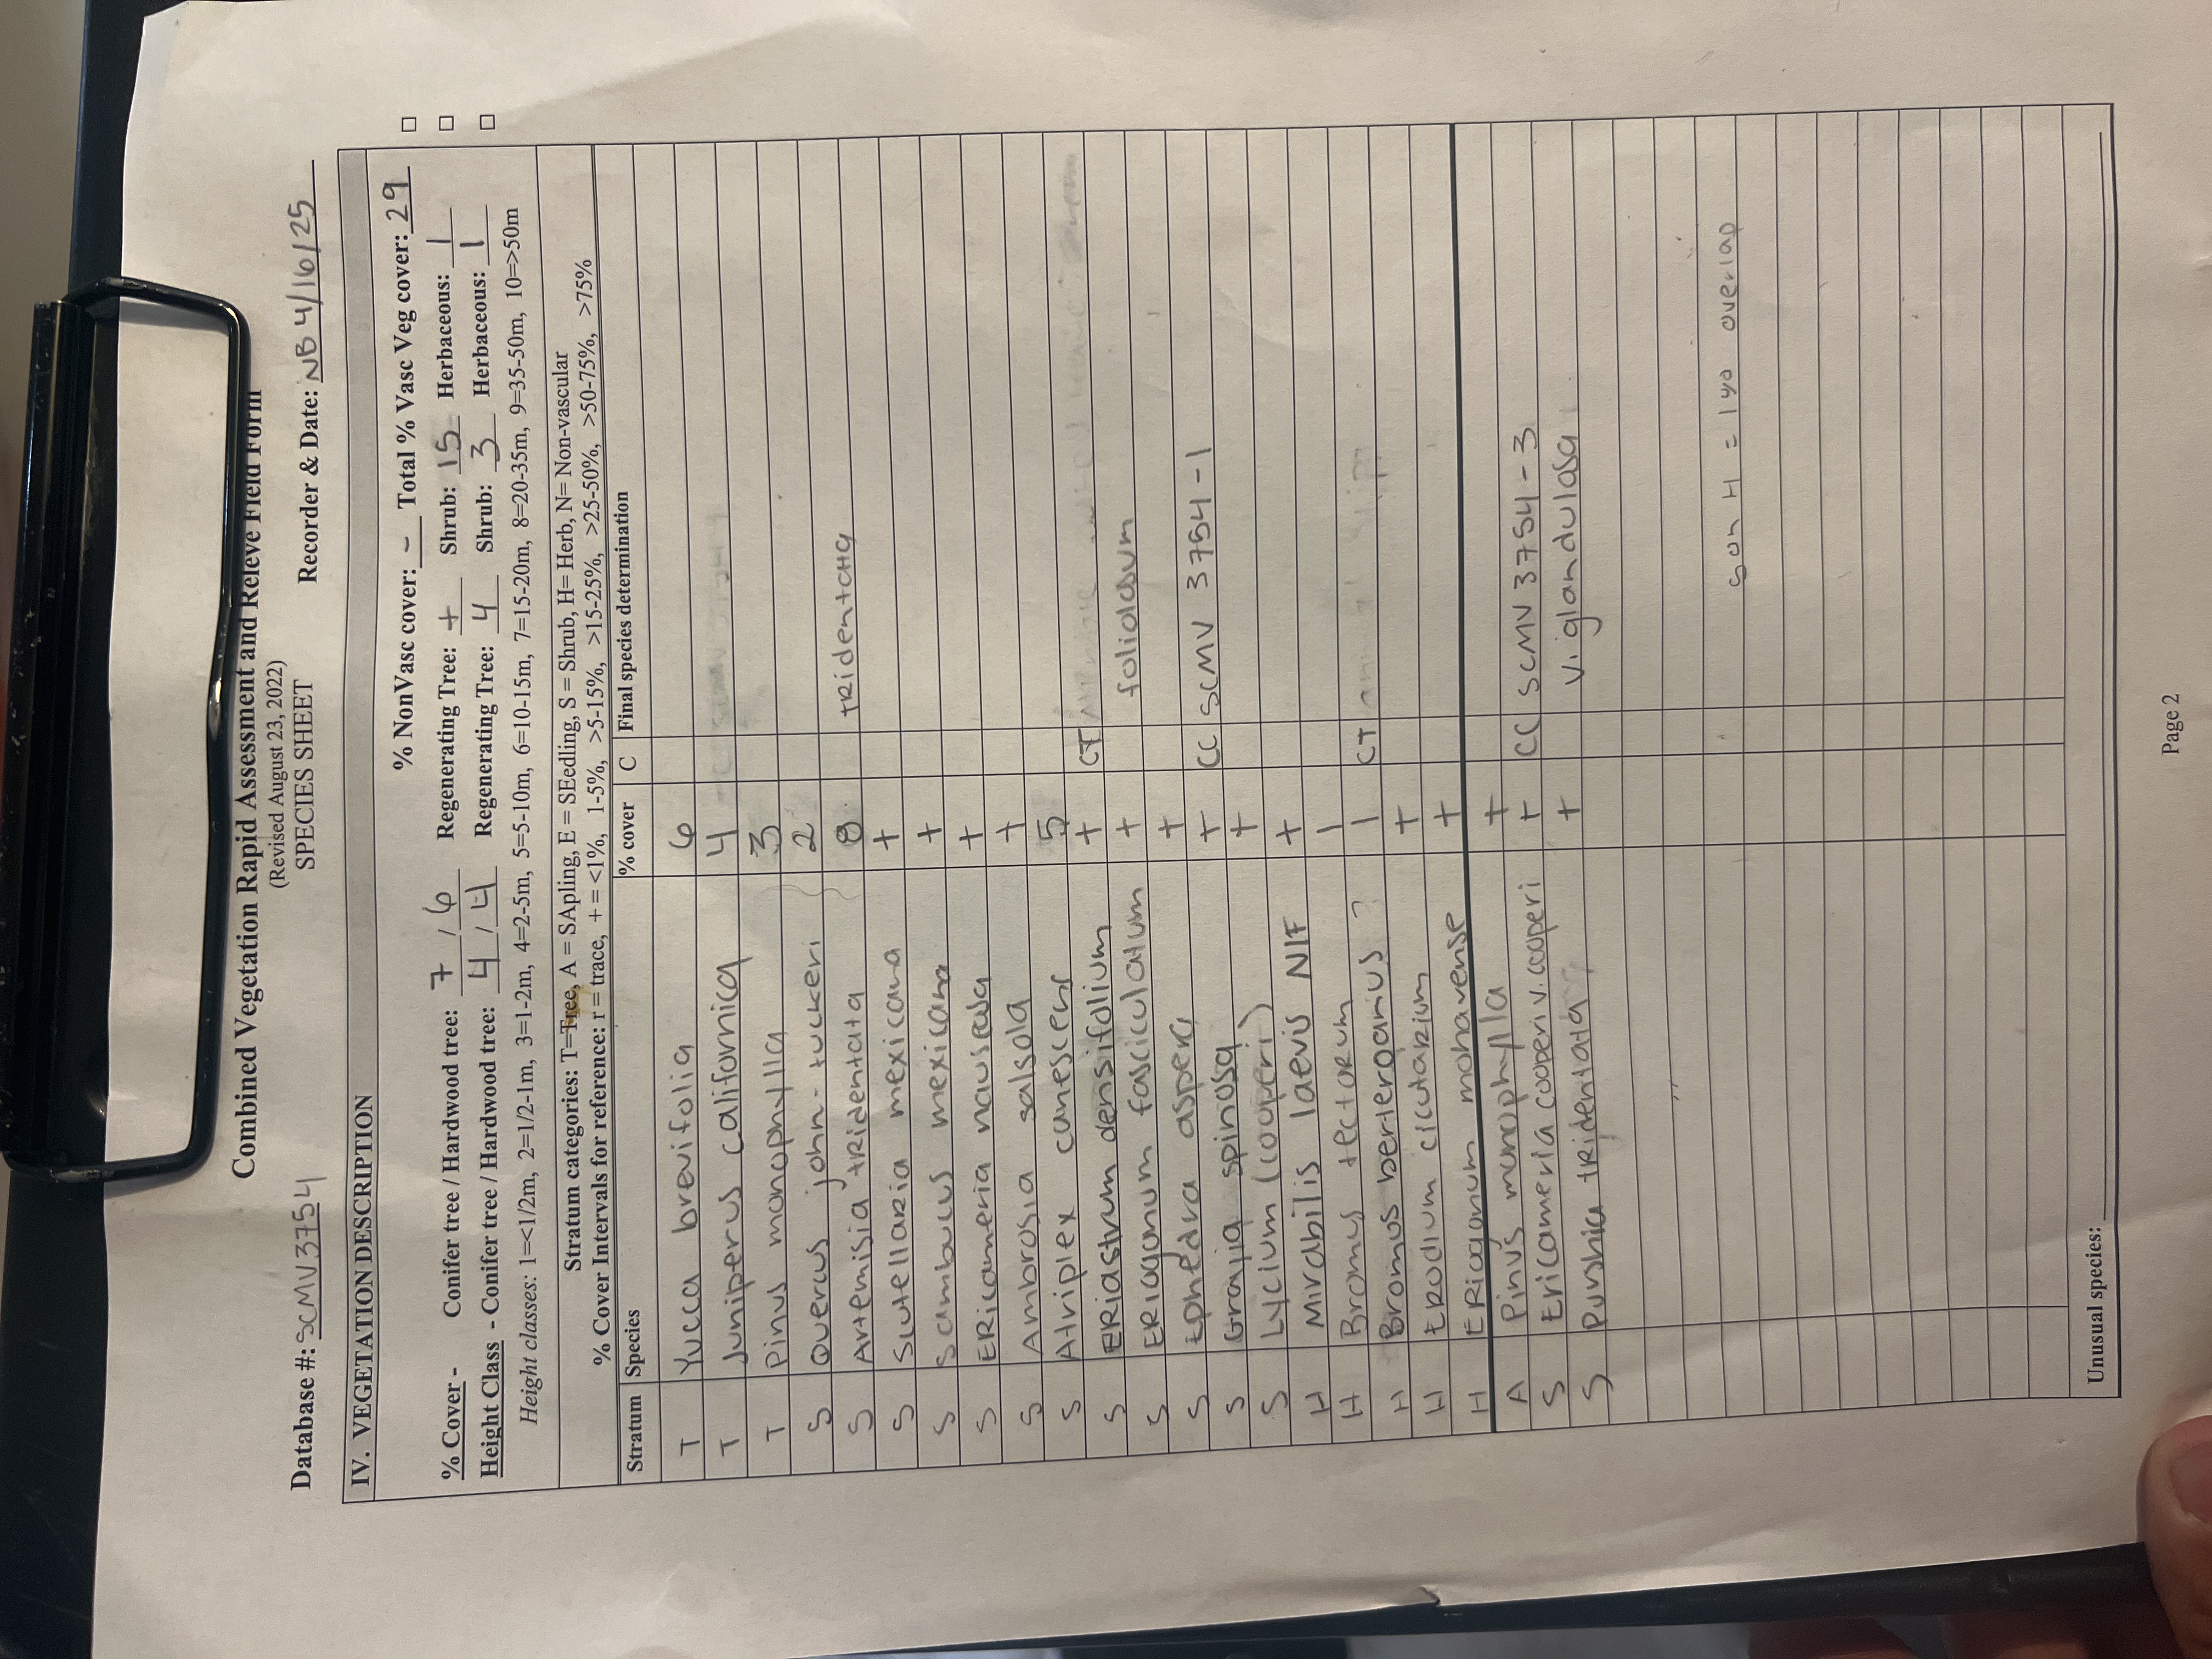 Combined Vegetation Rapid Assessment and Relevé Field Form
(Revised August 23, 2022)
SPECIES SHEET
Database #: SCMV3754 Recorder & Date: NB 4/16/25
IV. VEGETATION DESCRIPTION
% NonVasc cover: - Total % Vasc Veg cover: 29
% Cover - Conifer tree / Hardwood tree: 7 / 6 Regenerating Tree: + Shrub: 15 Herbaceous: 1
Height Class - Conifer tree / Hardwood tree: 4 / 4 Regenerating Tree: 4 Shrub: 3 Herbaceous: 1
Height classes: 1=<1/2m, 2=1/2-1m, 3=1-2m, 4=2-5m, 5=5-10m, 6=10-15m, 7=15-20m, 8=20-35m, 9=35-50m, 10=>50m
Stratum categories: T=Tree, A = SApling, E = SEedling, S = Shrub, H= Herb, N= Non-vascular
% Cover Intervals for reference: r = trace, + = <1%, 1-5%, >5-15%, >15-25%, >25-50%, >50-75%, >75%
Stratum Species % cover C Final species determination
T Yucca brevifolia 6
T Juniperus californica 4
T Pinus monophylla 3
S Quercus john-tuckeri 2
S Artemisia tridentata 8 tridentata
S Scutellaria mexicana +
S Sambucus mexicana +
S Ericameria nauseosa +
S Ambrosia salsola +
S Atriplex canescens 5
S Eriastrum densifolium + CT
S Eriogonum fasciculatum + foliolosum
S Ephedra aspera +
S Grayia spinosa + CC SCMV 3754-1
S Lycium (cooperi) +
H Mirabilis laevis NIF +
H Bromus tectorum 1
H Bromus berteroanus? 1 CT
H Erodium cicutarium +
H Eriogonum mohavense +
A Pinus monophylla +
S Ericameria cooperi v. cooperi + CC SCMV 3754-3
S Purshia tridentata + v. glandulosa
S on H = 1% overlap
Unusual species:
Page 2